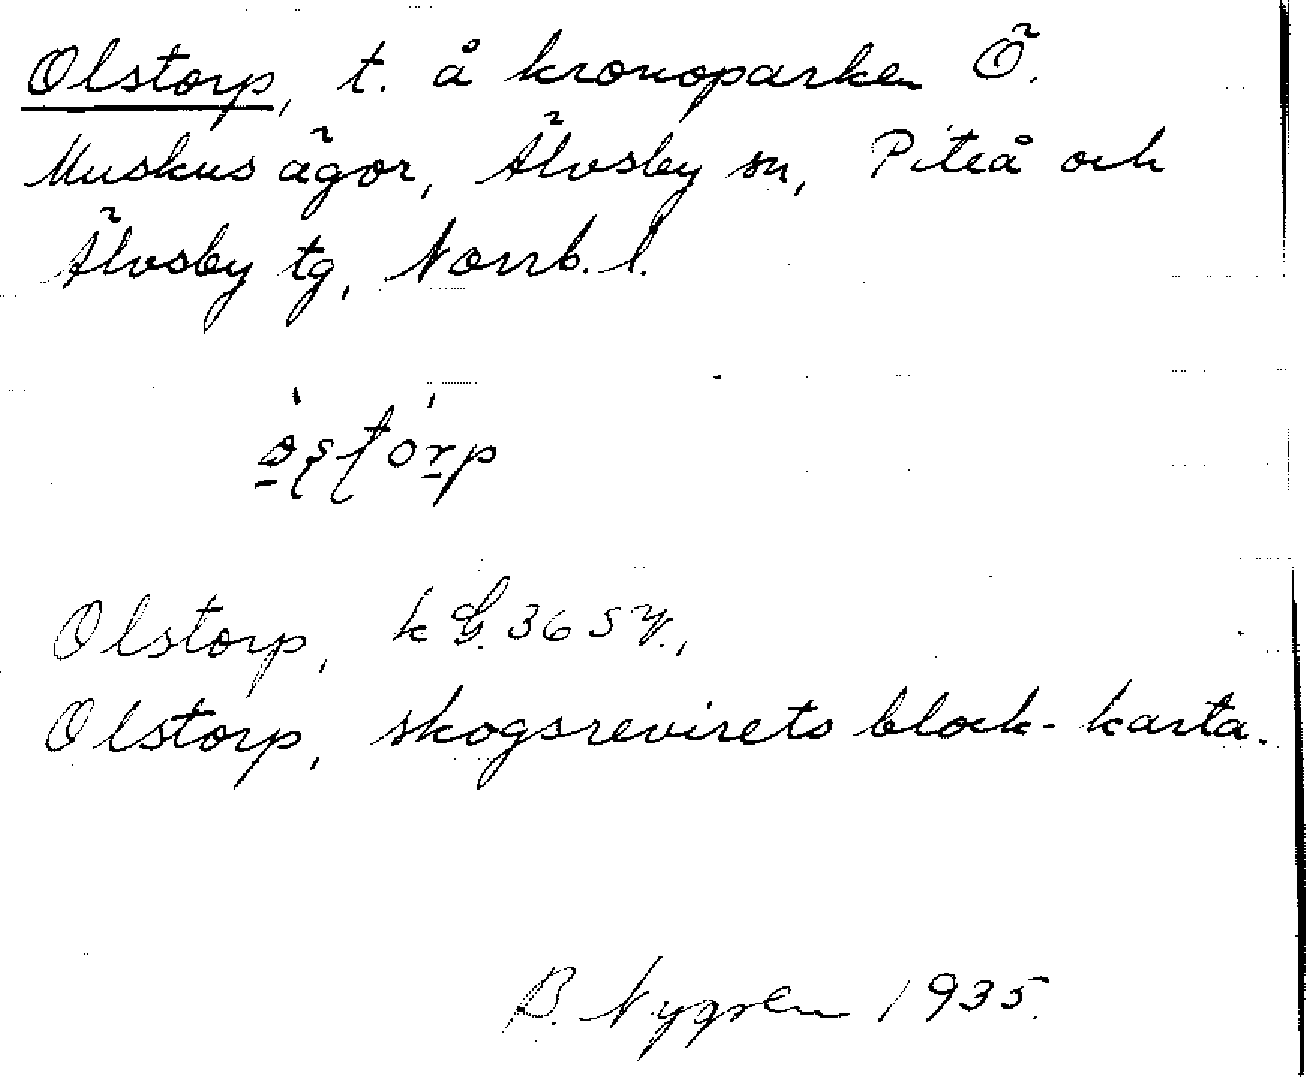 Olstorp, t. å kronoparken Ö.
Muskus ägor, Älvsby sn, Piteå och
Älvsby tg, Norrb. l.
Olstorp, k G. 365 y.,
Olstorp, skogsrevirets block-karta.
B. Nygren 1935.